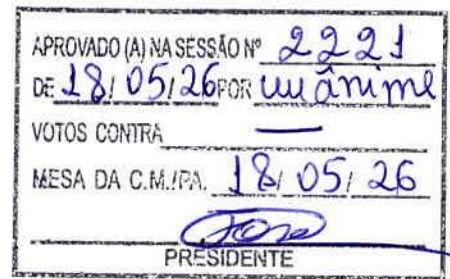 APROVADO (A) NA SESSÃO Nº 2221
DE 18/05/26 POR unânime
VOTOS CONTRA —
MESA DA C.M./PA. 18/05/26
PRESIDENTE